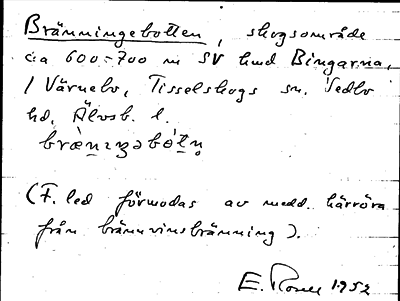 Bränningebotten, skogsområde
ca 600-700 m SV om Bingarna,
i Värnebo, Tisselskogs sn. Vedbo
hd, Älvsb. l.
(F. led förmodas av medd. härröra
från brännvinsbränning).
E. 1952